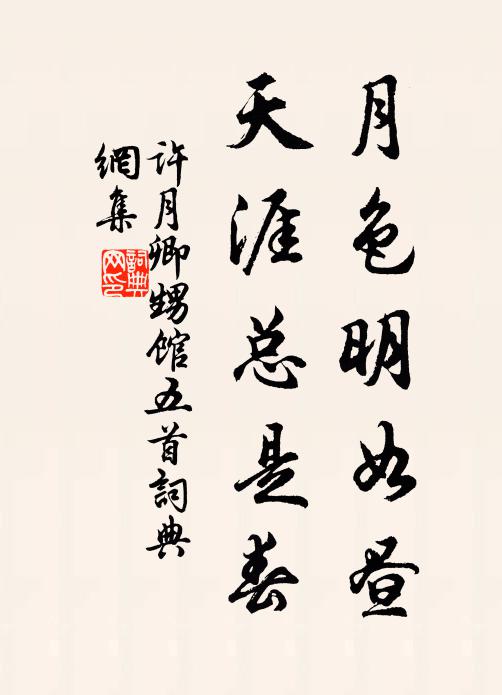 月色明如昼
天涯总是春
許月卿甥馆五首詞典
網集
詞典网印